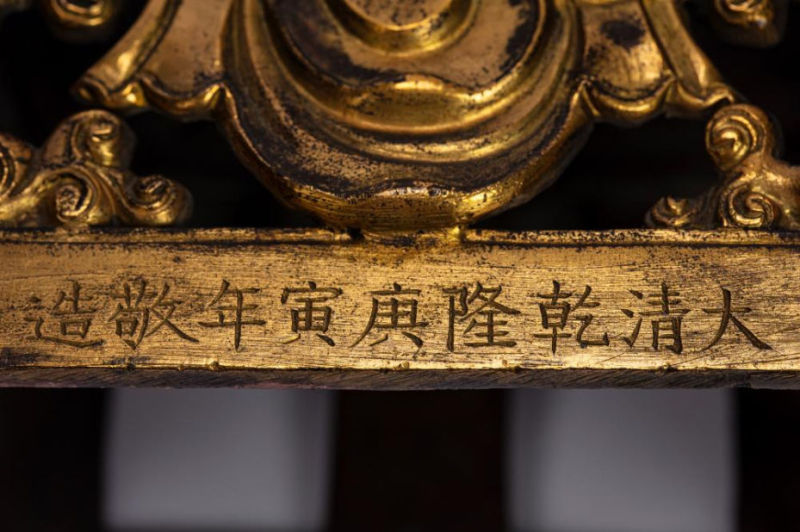 大清乾隆庚寅年敬造